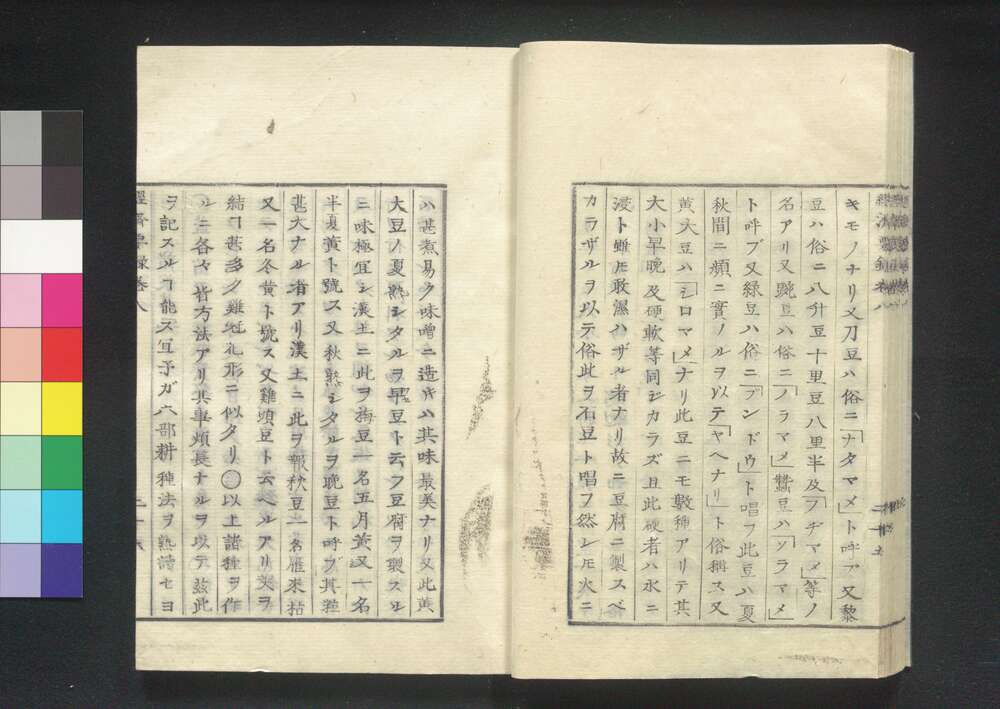 キモノナリ又刀豆ハ俗ニ「ナタマメ」ト呼ブ又黎
豆ハ俗ニ八升豆十里豆八里半及「フヂマメ」等ノ
名アリ又豌豆ハ俗ニ「ノラマメ」蠶豆ハ「ソラマメ」
ト呼ブ又緑豆ハ俗ニ「ブンドウ」ト唱フ此豆ハ夏
秋間ニ頻ニ實ノルヲ以テ「ヤヘナリ」ト俗稱ス又
黄大豆ハ「シロマメ」ナリ此豆ニモ數種アリテ其
大小早晩及硬軟等同ジカラズ且此硬者ハ水ニ
浸ト雖モ敢濕ハザル者ナリ故ニ豆腐ニ製スベ
カラザルヲ以テ俗此ヲ石豆ト唱フ然レモ火ニ
ハ甚煮易ク味噌ニ造キハ其味最美ナリ又此黄
大豆ノ夏熟シタルヲ早豆ト云フ豆腐ヲ製スル
ニ味極宜シ漢土ニ此ヲ梅豆一名五月黄又一名
半夏黄ト號ス又秋熟シタルヲ晩豆ト呼ブ其粒
甚大ナル者アリ漢土ニ此ヲ報秋豆一名雁來枯
又一名冬黄ト號ス又雞頭豆ト云ヘルアリ莢ヲ
結ヿ甚多ク雞冠花形ニ似タリ○以上諸種ヲ作
ルニ各々皆方法アリ其事煩長ナルヲ以テ茲此
ヲ記スルヿ能ス宜予ガ六部耕種法ヲ熟讀セヨ
經濟要録卷八